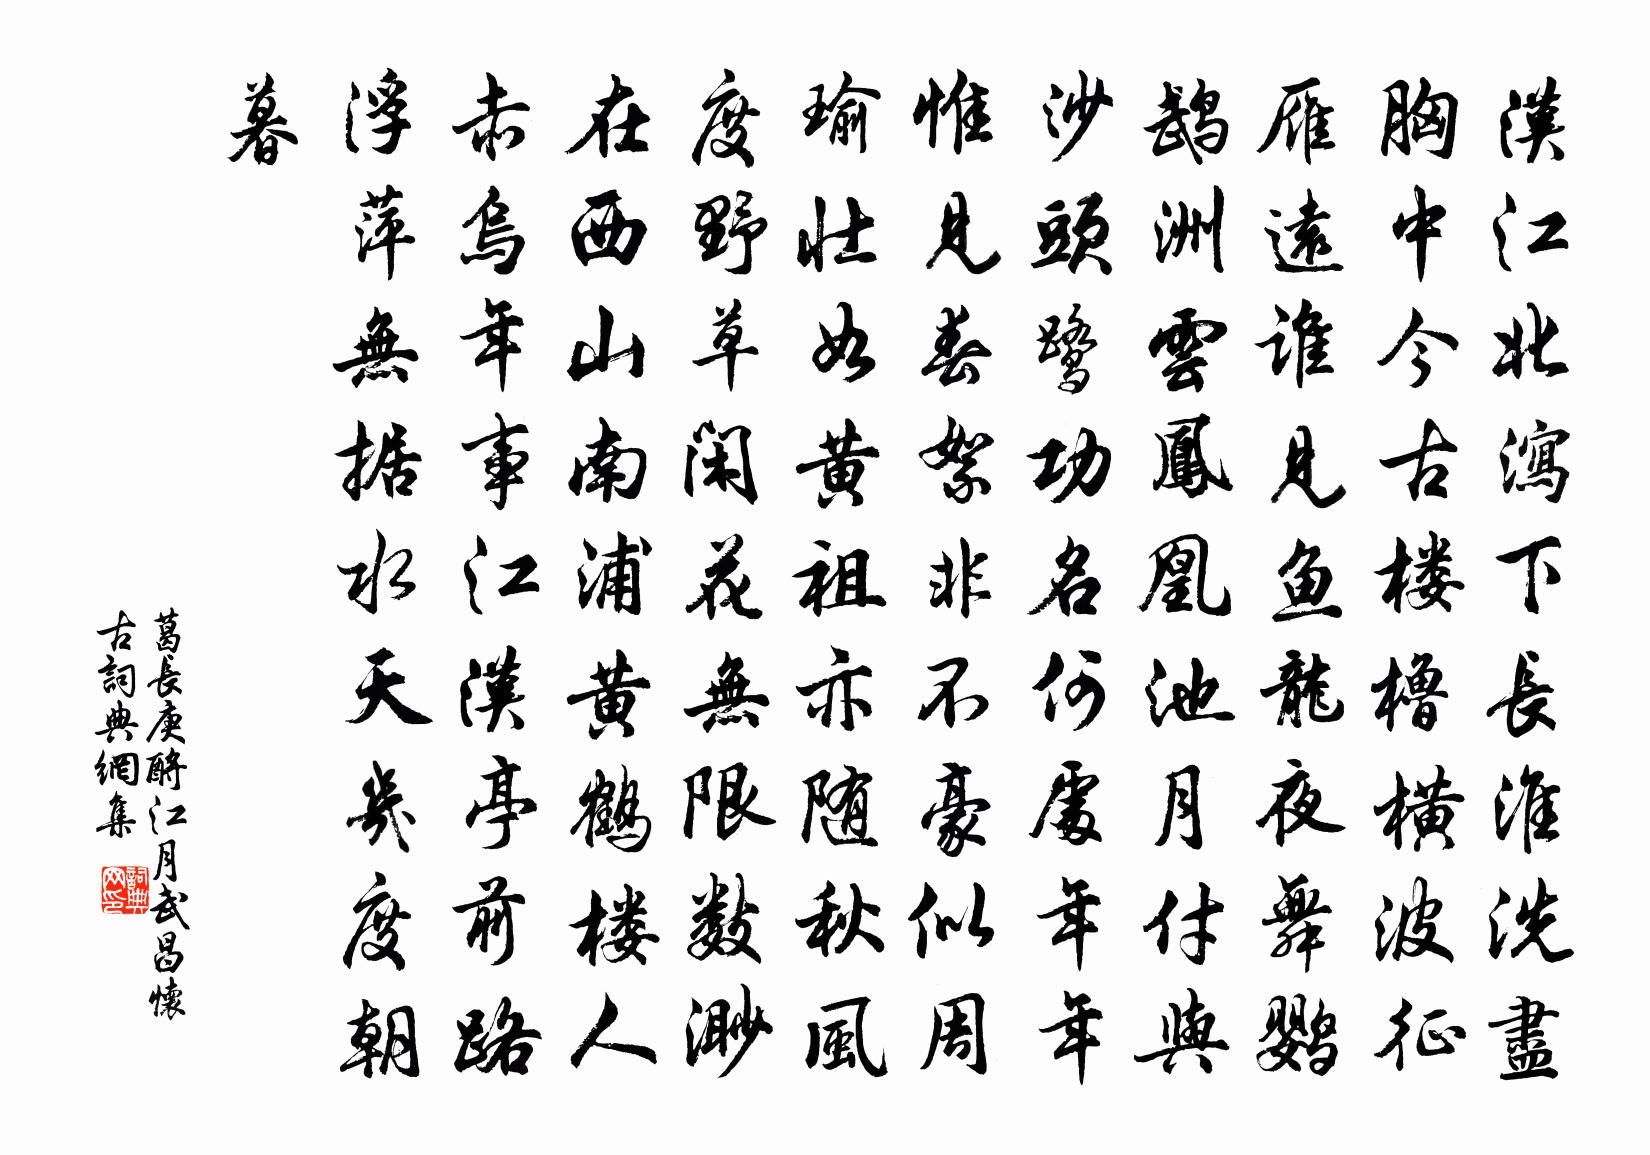 漢江北瀉下長淮洗盡
胸中今古樓櫓橫波征
雁遠誰見魚龍夜舞鸚
鵡洲雲鳳凰池月付與
沙頭鷺功名何處年年
惟見春絮非不豪似周
瑜壯如黃祖亦隨秋風
度野草閑花無限數渺
在西山南浦黃鶴樓人
赤烏年事江漢亭前路
浮萍無據水天幾度朝
暮
葛長庚酹江月武昌懷
古詞典網集
詞典网印